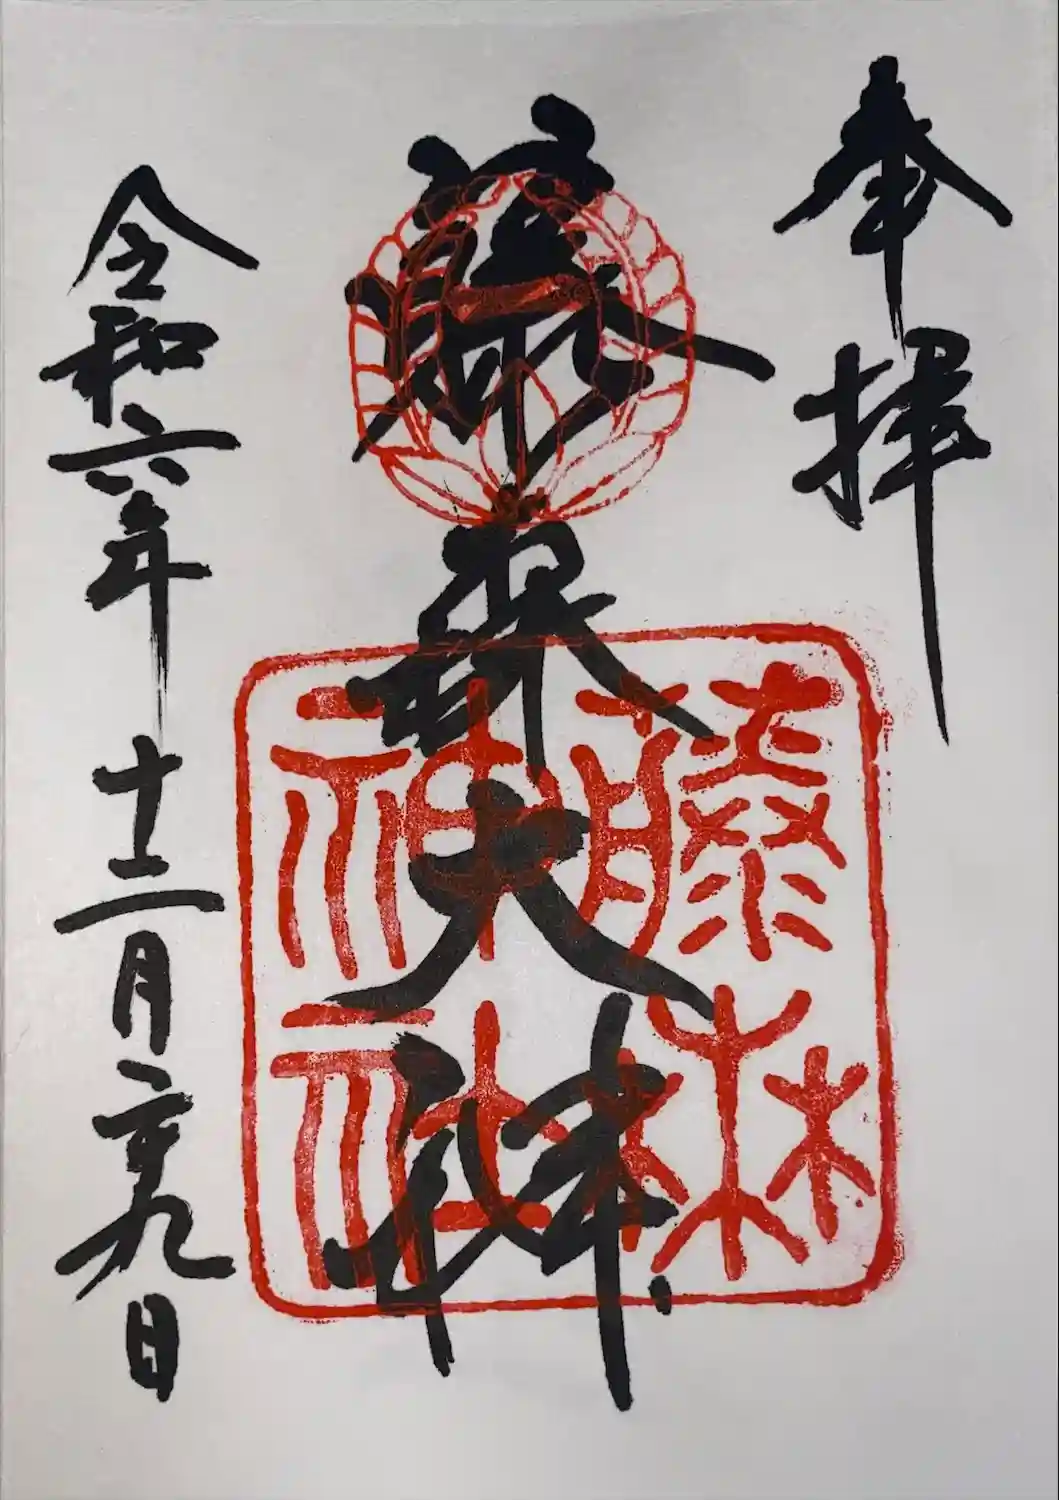 奉拝
藤森大神
藤森
神社
令和六年十二月二十九日